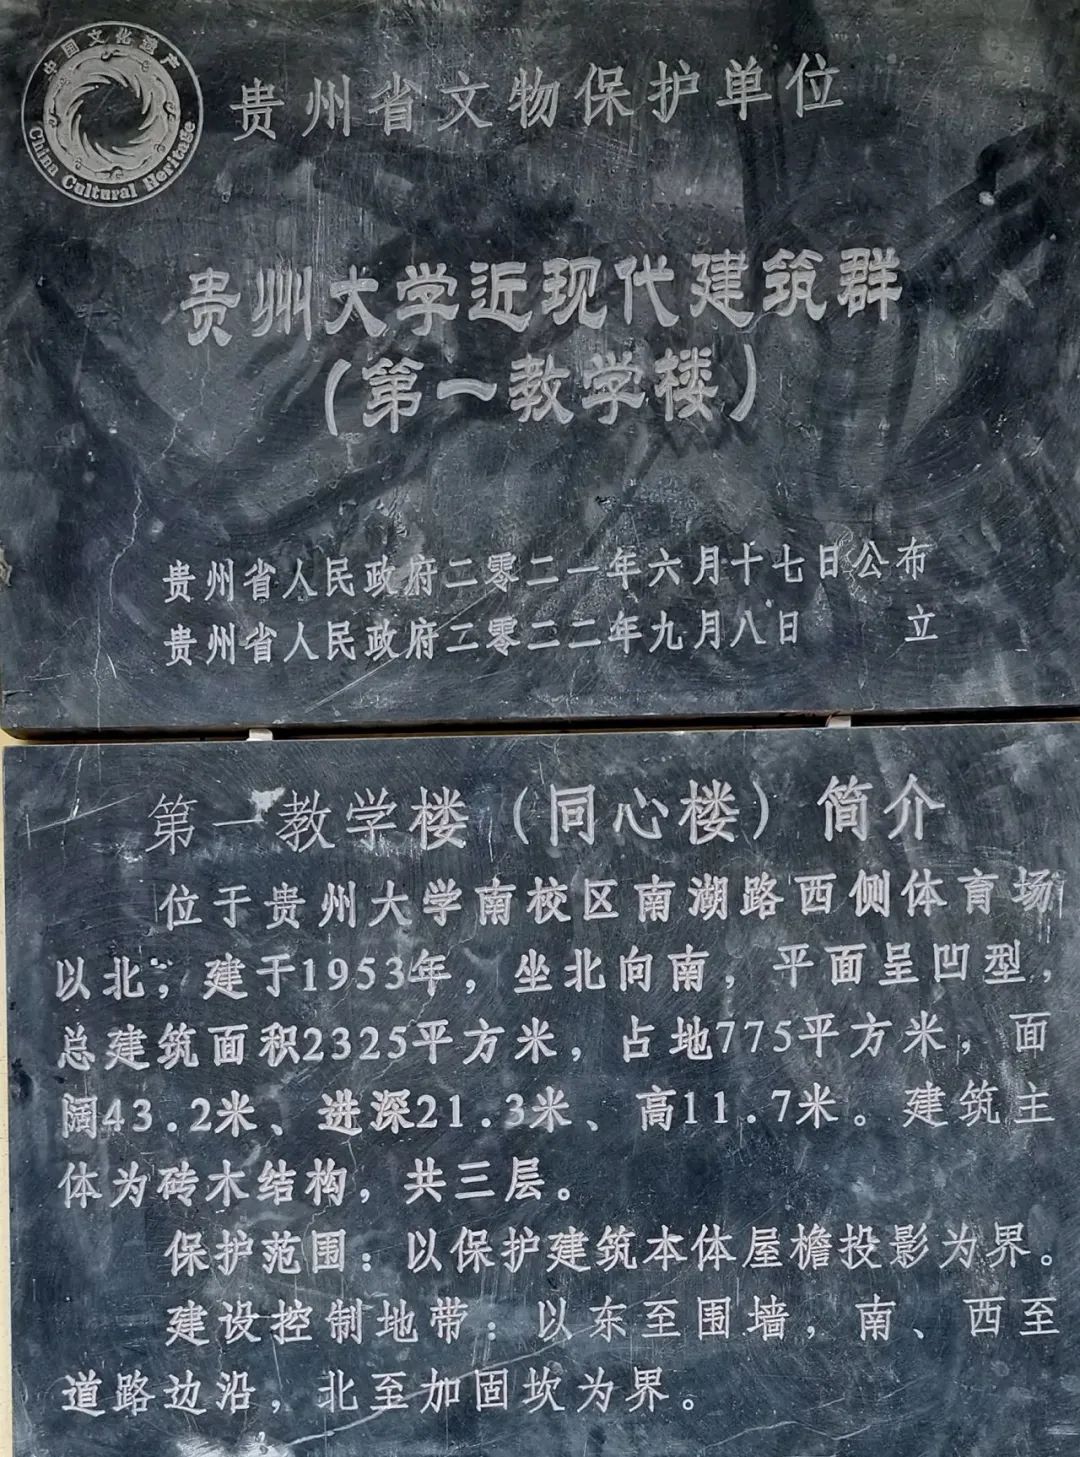 中国文化遗产
China Cultural Heritage
贵州省文物保护单位
贵州大学近现代建筑群
(第一教学楼)
贵州省人民政府二零二一年六月十七日公布
贵州省人民政府二零二二年九月八日 立
第一教学楼(同心楼)简介
位于贵州大学南校区南湖路西侧体育场
以北;建于1953年,坐北向南,平面呈凹型,
总建筑面积2325平方米,占地775平方米,面
阔43.2米、进深21.3米、高11.7米。建筑主
体为砖木结构,共三层。
保护范围:以保护建筑本体屋檐投影为界。
建设控制地带:以东至围墙,南、西至
道路边沿,北至加固坎为界。